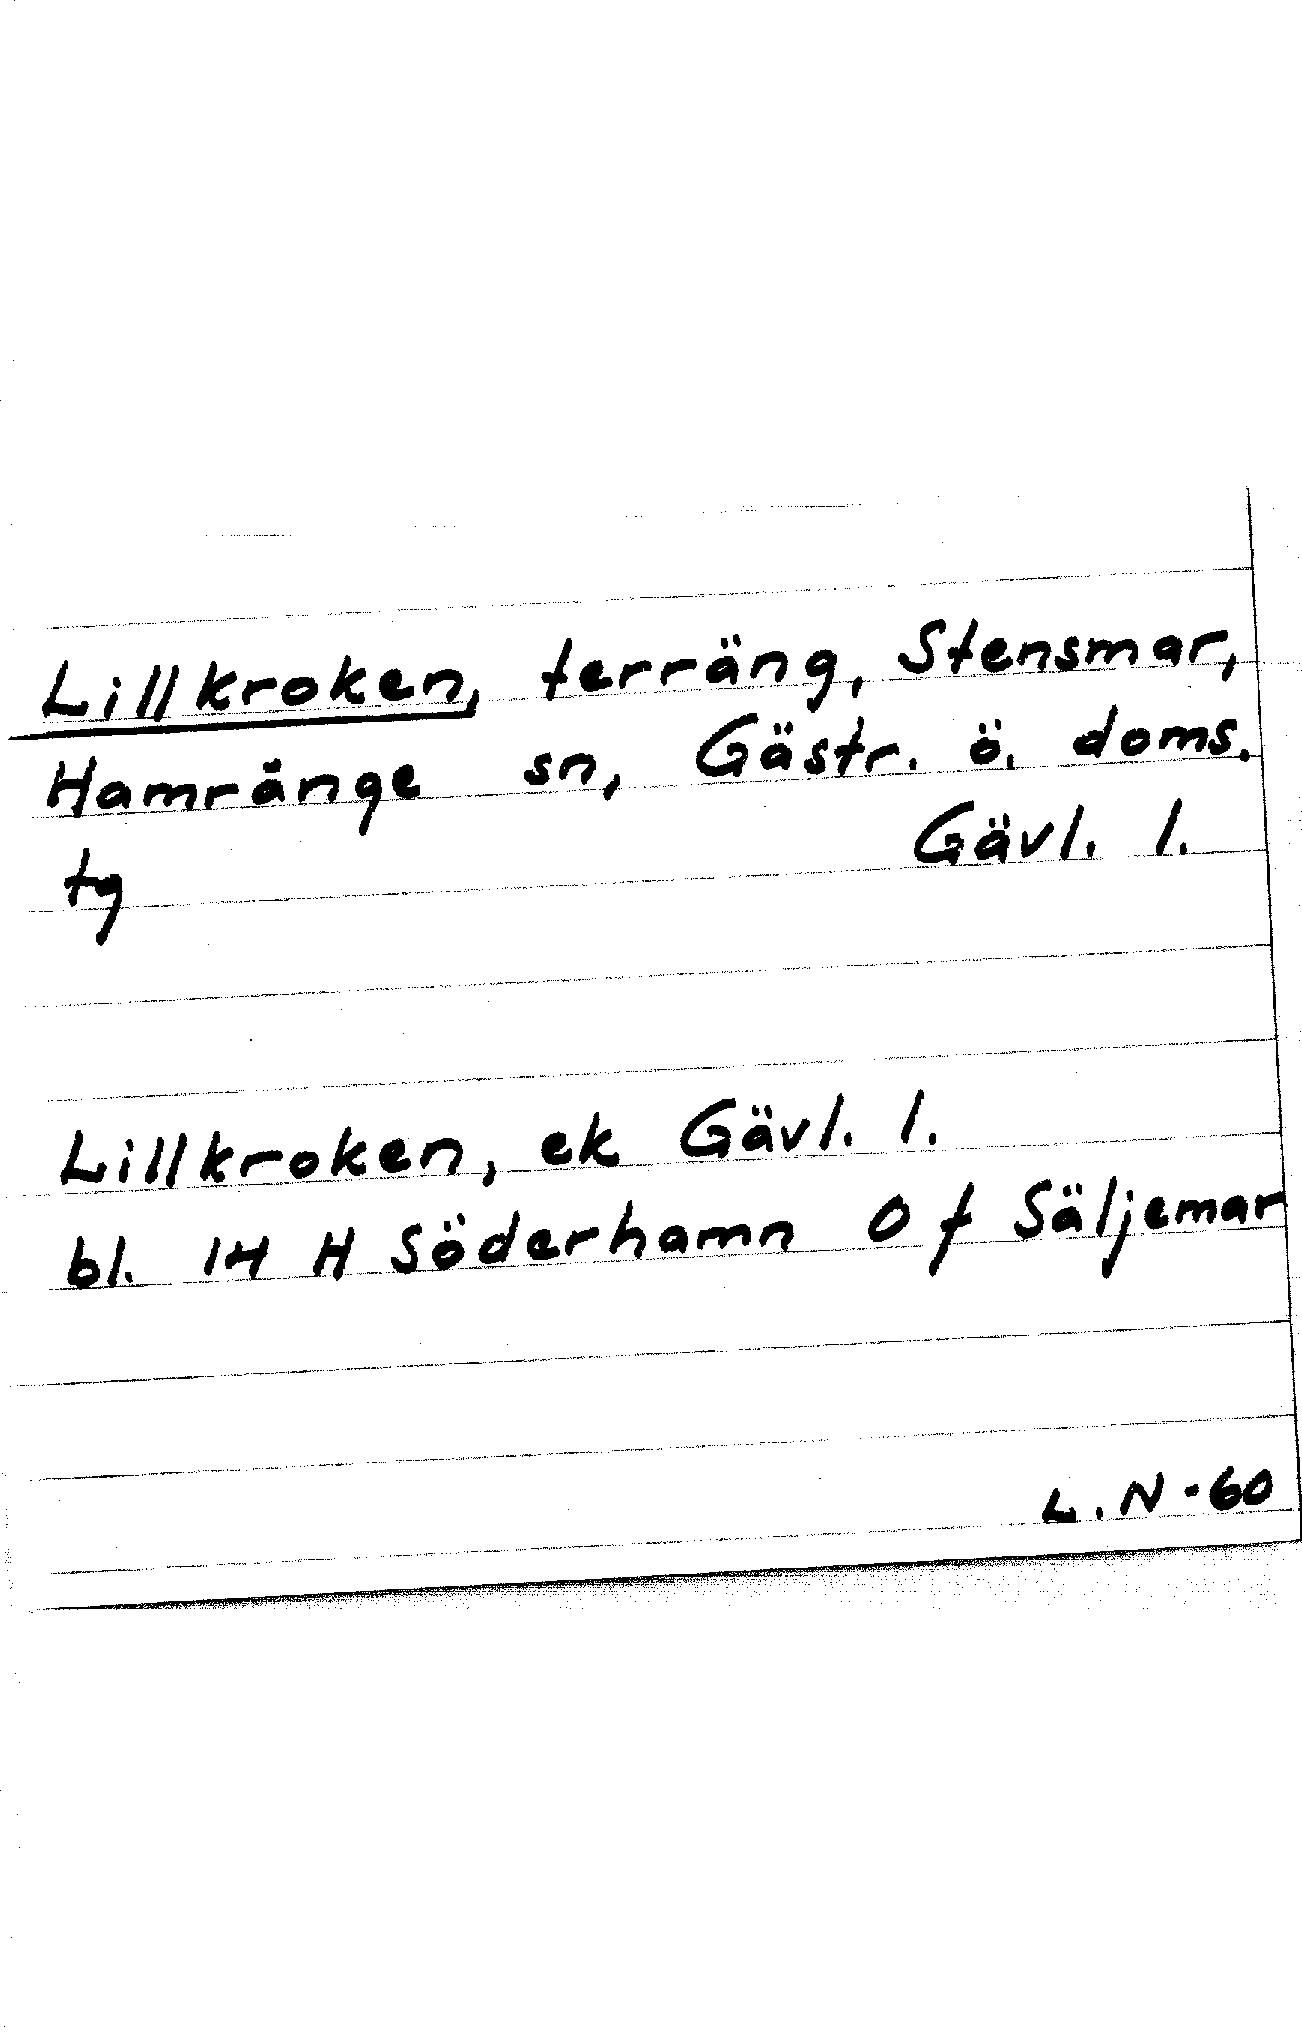 Lillkroken, terräng, Stensmar,
Hamrånge sn, Gästr. ö. doms.
tg Gävl. l.
Lillkroken, ek Gävl. l.
bl. 14 H Söderhamn O f Säljemar
L.N-60